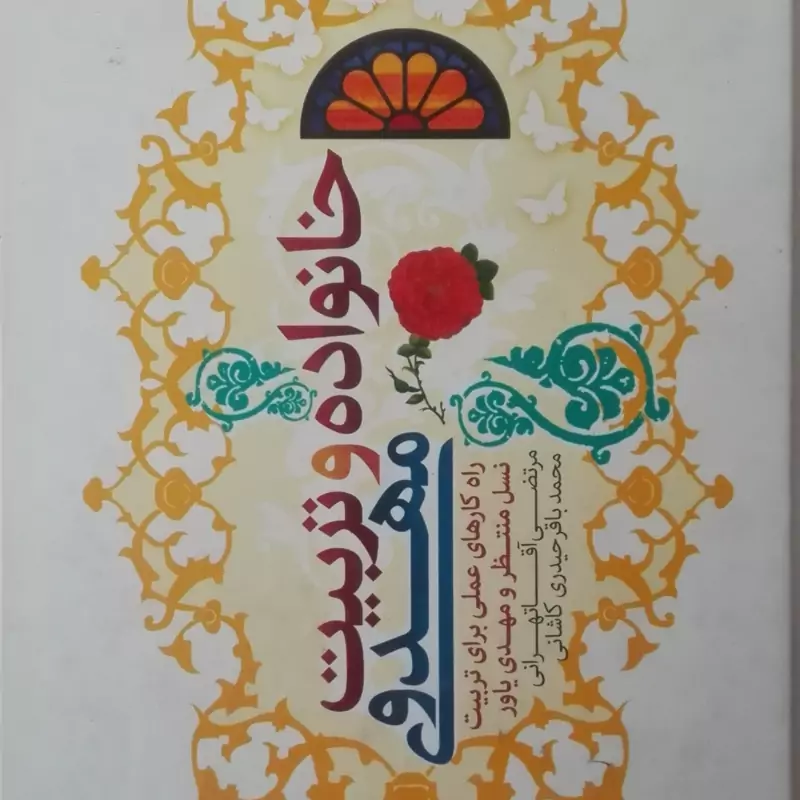 خانواده و تربیت
مهدوی
راه کارهای عملی برای تربیت
نسل منتظر و مهدی یاور
مرتضی آقاتهرانی
محمدباقر حیدری کاشانی